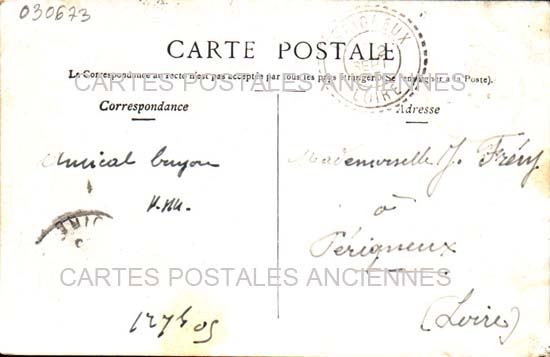 030673
CARTE POSTALE
La Correspondance au recto n'est pas acceptée par tous les pays étrangers (Se renseigner à la Poste).
CARTES POSTALES ANCIENNES
Correspondance
Adresse
LOIRE
Amical
Mademoiselle J. Frény
à
Périgneux
(Loire)
CARTES POSTALES ANCIENNES